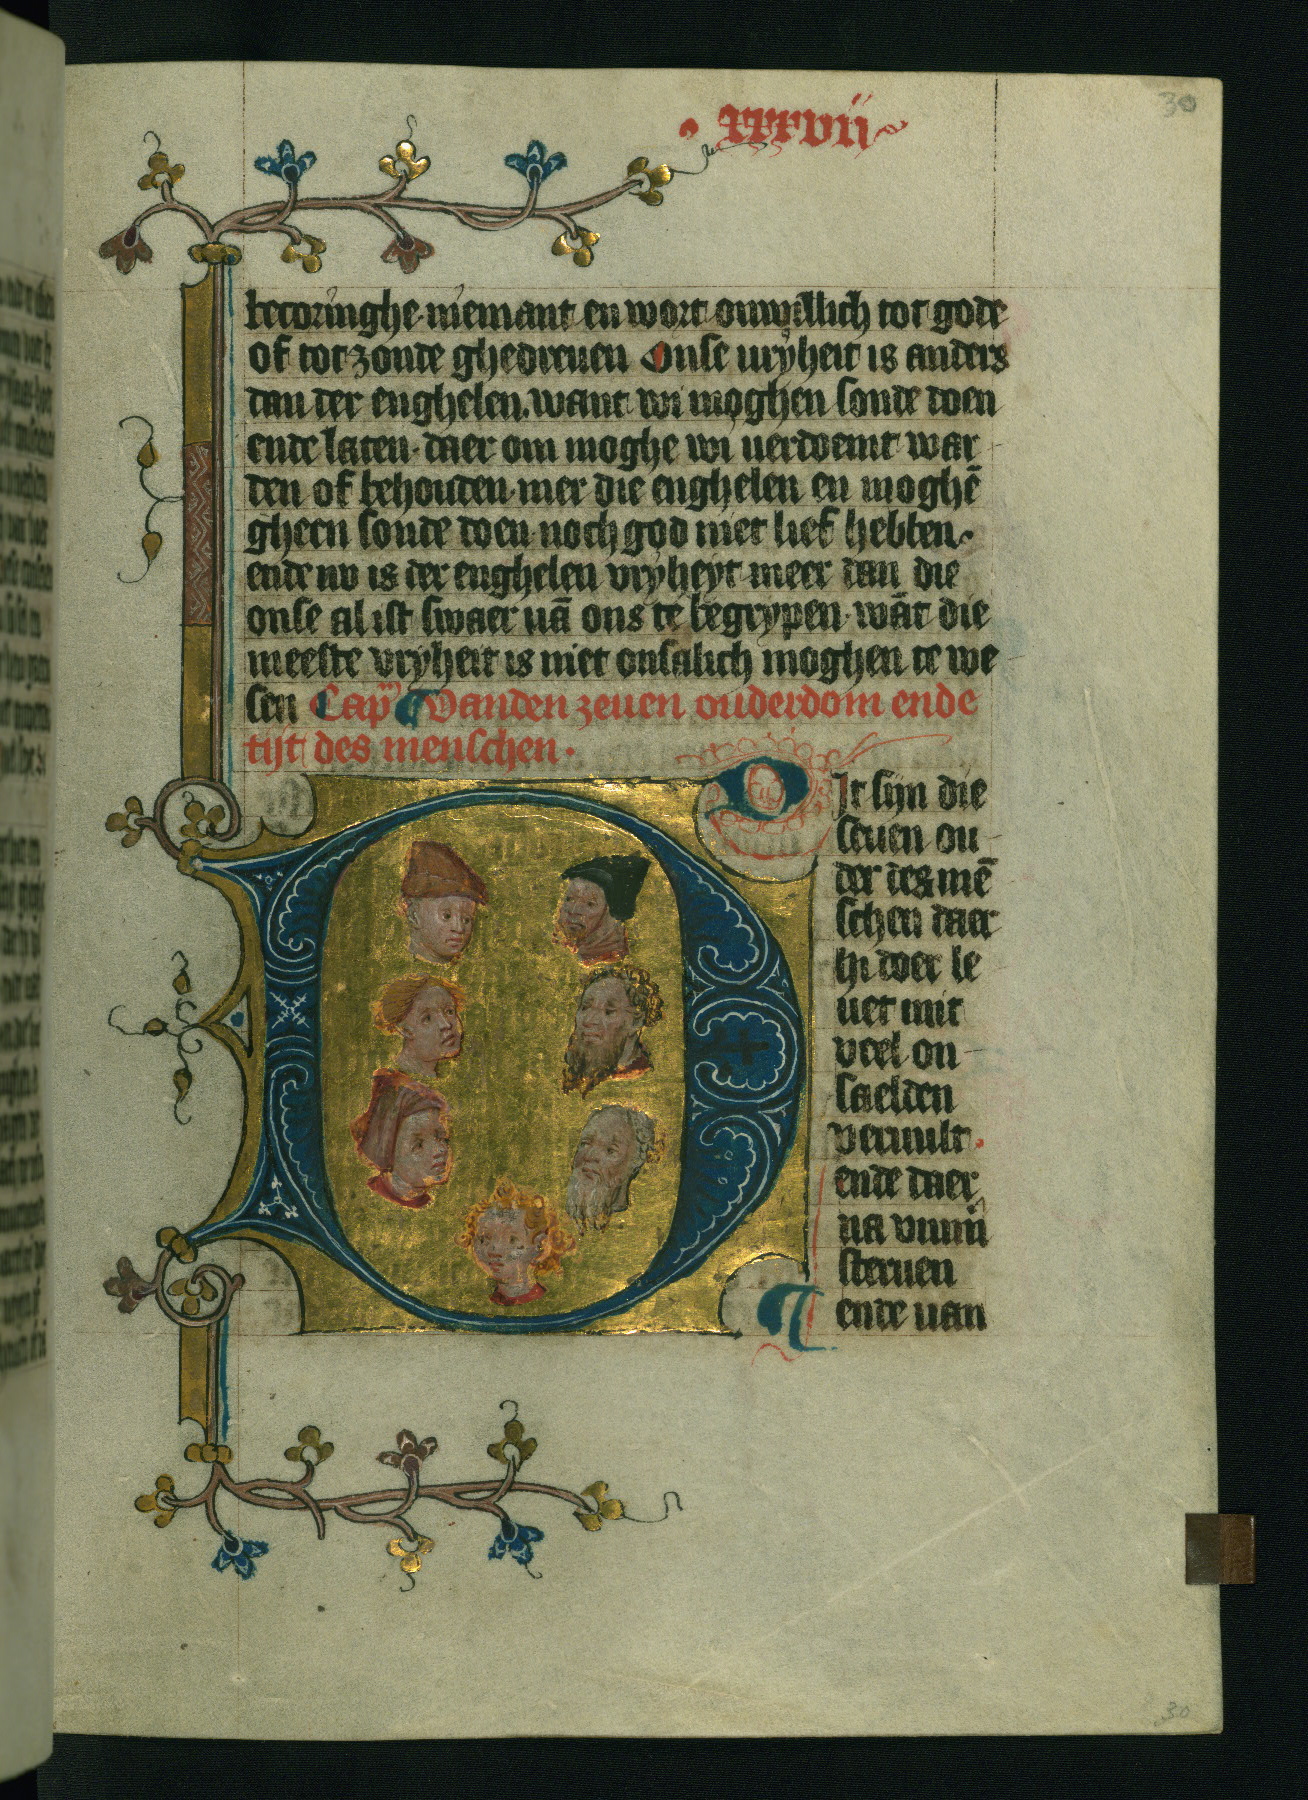 30
. xxxvii
becoringhe niemant en wort onwillich tot gode
of tot zonde ghedreuen Onse vryheit is anders
dan der enghelen. want wi moghen sonde doen
ende laten. daer om moghe wi verdoemt war
den of behouden. mer die enghelen en moghē
gheen sonde doen noch god niet lief hebben.
ende nv is der enghelen vryheyt meer dan die
onse al ist swaer uā ons te begrypen. wāt die
meeste vryheit is niet onsalich moghen te we
sen Cap̄ Vanden zeuen ouderdom ende
tijt des menschen.
D It sijn die
seuen ou
der des mē
schen daer
hi doer le
uet mit
veel on
saelden
veruult.
ende daer
na
steruen
ende uan
30